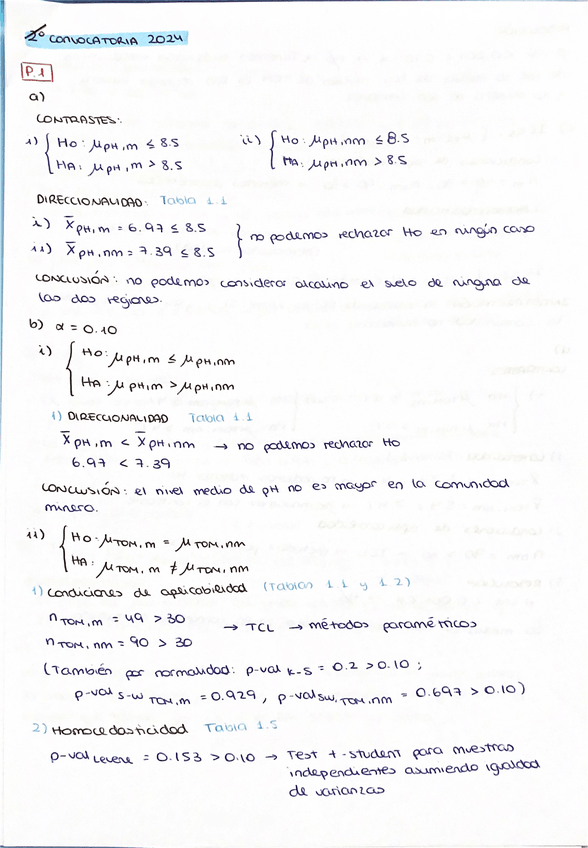 2º CONVOCATORIA 2024
P.1
a)
CONTRASTES:
i) { H0: μpH,m ≤ 8.5   ii) { H0: μpH,nm ≤ 8.5
HA: μpH,m > 8.5   HA: μpH,nm > 8.5
DIRECCIONALIDAD: Tabla 1.1
i) X̄pH,m = 6.97 ≤ 8.5
ii) X̄pH,nm = 7.39 ≤ 8.5 } no podemos rechazar H0 en ningún caso
CONCLUSIÓN: no podemos considerar alcalino el suelo de ninguna de
las dos regiones.
b) α = 0.10
i) { H0: μpH,m ≤ μpH,nm
HA: μpH,m > μpH,nm
1) DIRECCIONALIDAD Tabla 1.1
X̄pH,m < X̄pH,nm → no podemos rechazar H0
6.97 < 7.39
CONCLUSIÓN: el nivel medio de pH no es mayor en la comunidad
minera.
ii) { H0: μTOM,m = μTOM,nm
HA: μTOM,m ≠ μTOM,nm
1) Condiciones de aplicabilidad (Tablas 1.1 y 1.2)
nTOM,m = 49 > 30
nTOM,nm = 90 > 30 → TCL → métodos paramétricos
(También por normalidad: p-val K-S = 0.2 > 0.10 ;
p-val S-W TOM,m = 0.929, p-val SW, TOM,nm = 0.697 > 0.10)
2) Homocedasticidad Tabla 1.5
p-val Levene = 0.153 > 0.10 → Test t-student para muestras
independientes asumiendo igualdad
de varianzas